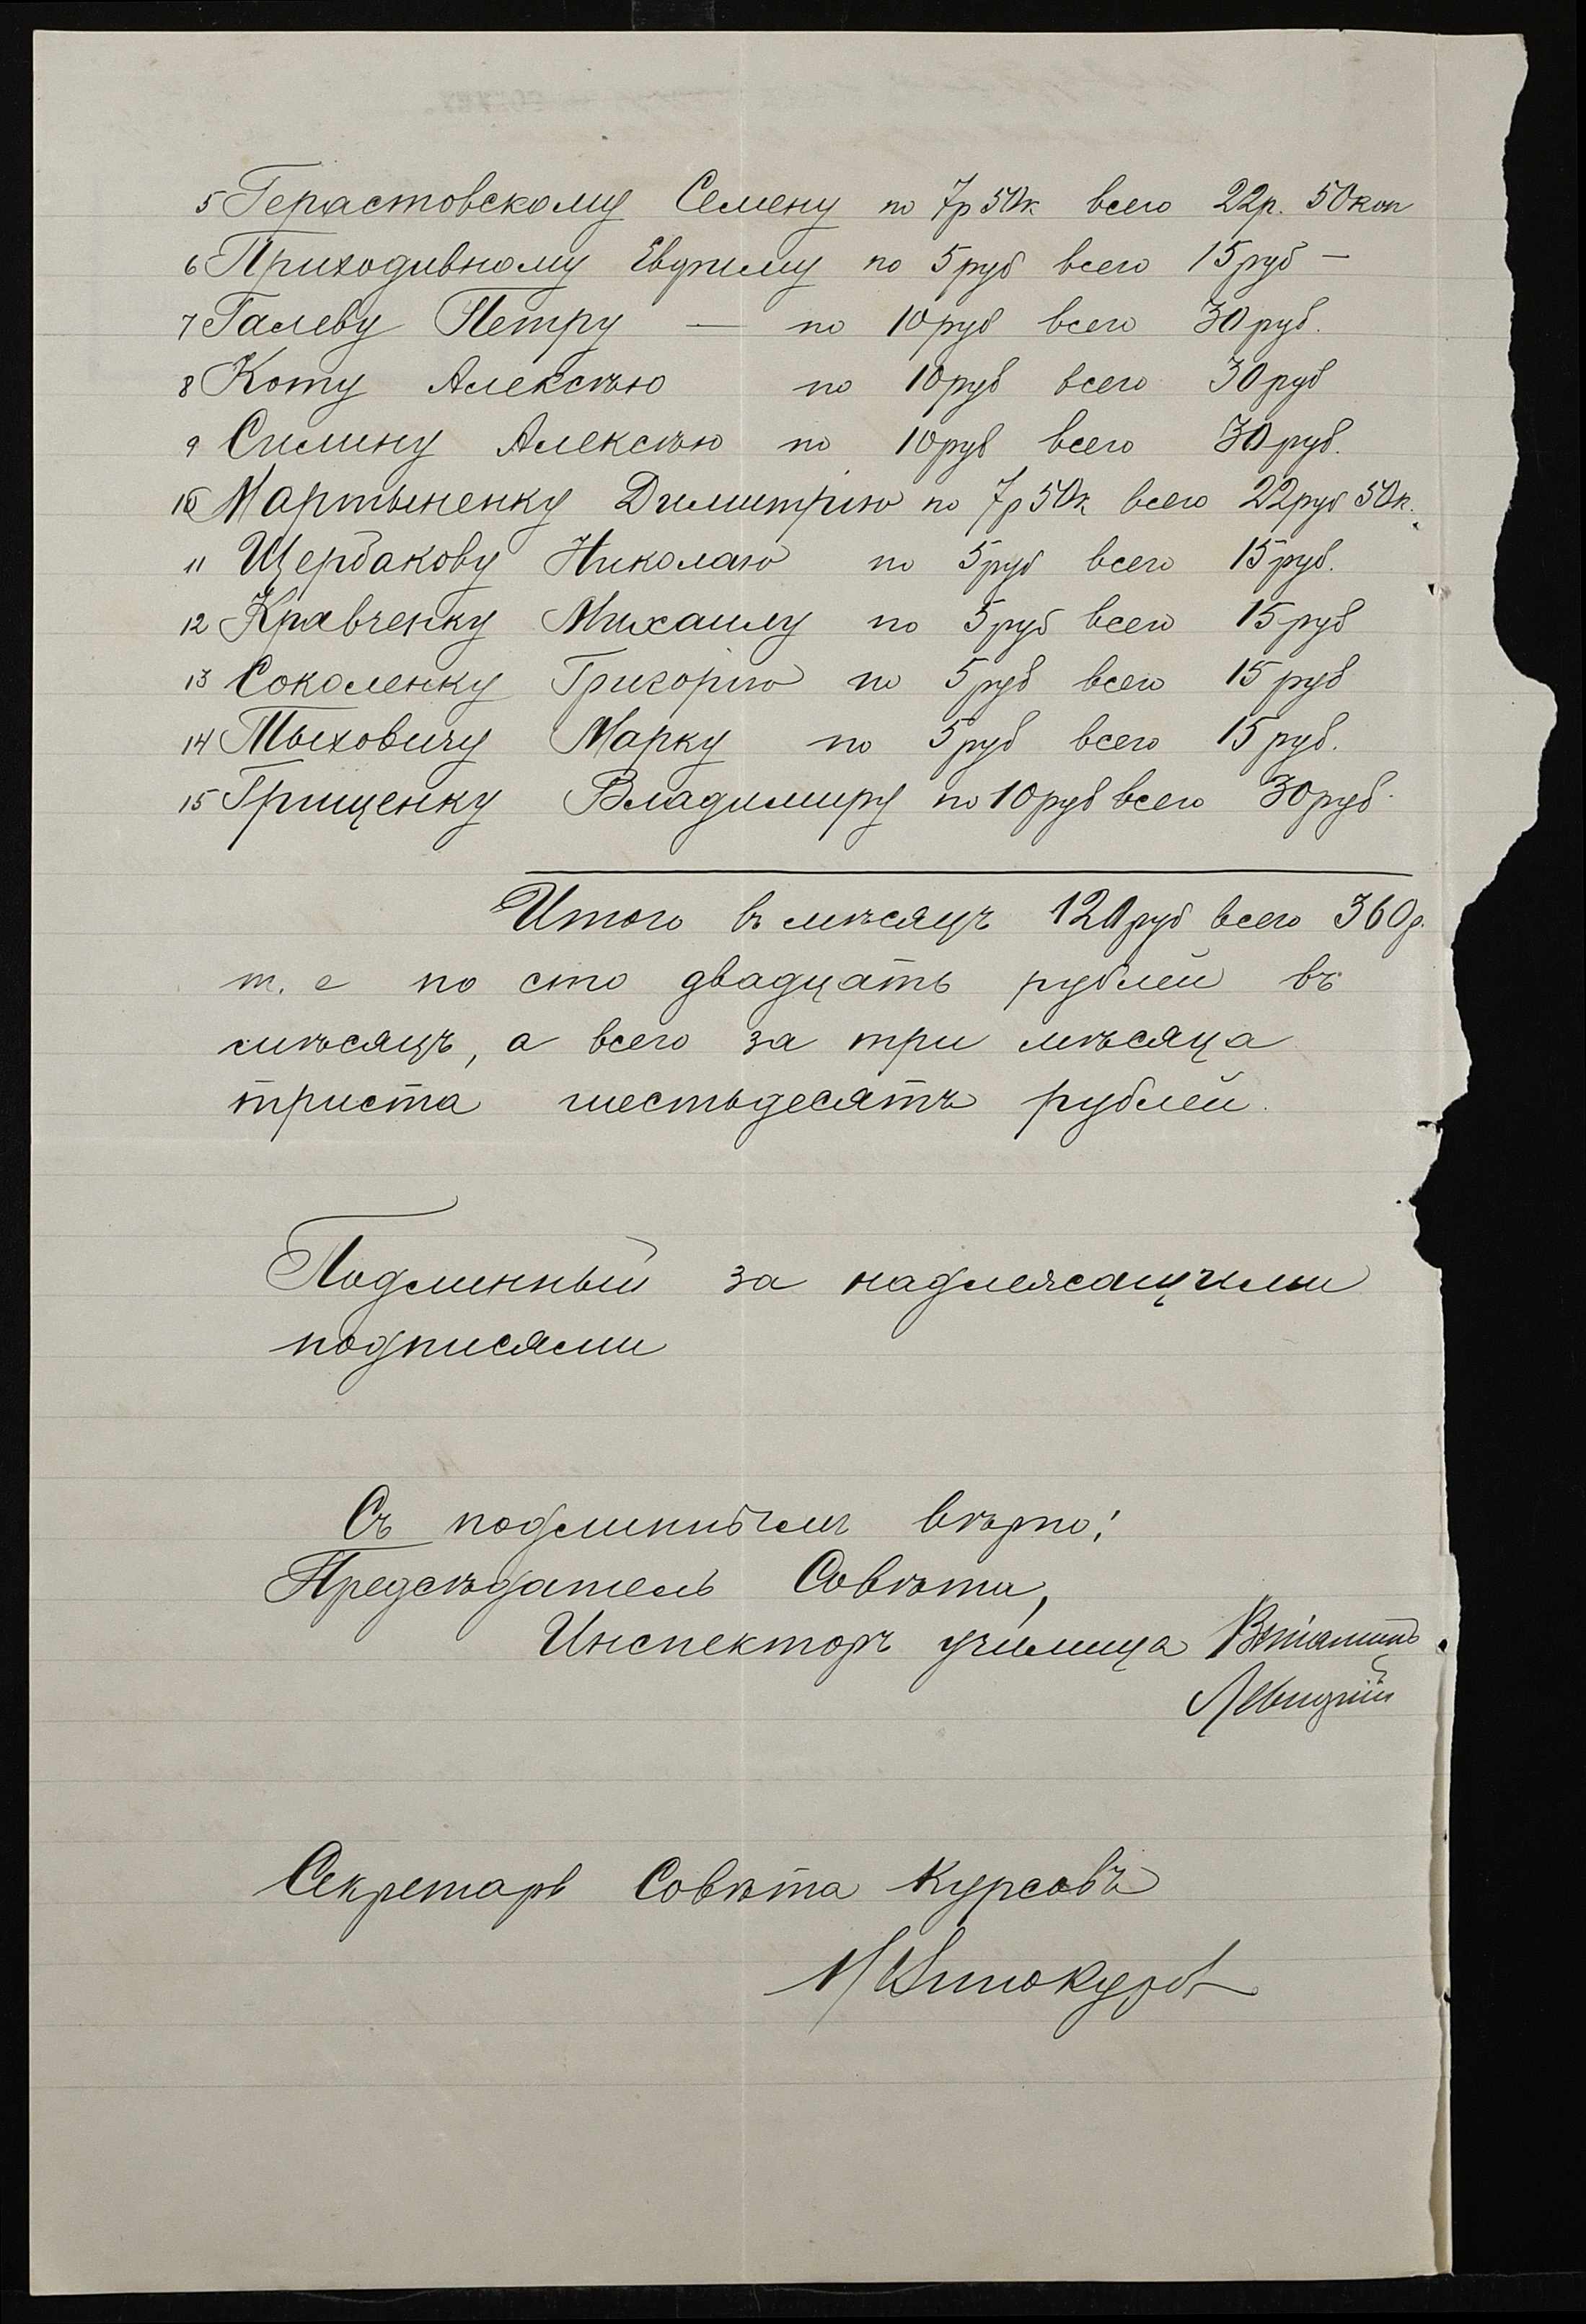 5 Герастовскому Семену по 7р 50к всего 22р. 50коп
6 Приходивному Евфиму по 5руб всего 15руб —
7 Галеву Петру — по 10руб всего 30руб.
8 Коту Алексѣю по 10руб всего 30руб
9 Силину Алексѣю по 10руб всего 30руб.
10 Мартыненку Димитрію по 7р 50к всего 22руб 50к.
11 Щербакову Николаю по 5руб всего 15руб.
12 Кравченку Михаилу по 5руб всего 15руб
13 Соколенку Григорію по 5руб всего 15руб
14 Тыховичу Марку по 5руб всего 15руб.
15 Грищенку Владимиру по 10руб всего 30руб.
Итого въ мѣсяцъ 120руб всего 360р.
т. е по сто двадцать рублей въ
мѣсяцъ, а всего за три мѣсяца
триста шестьдесятъ рублей.
Подлинный за надлежащими
подписями
Съ подлиннымъ вѣрно:
Предсѣдатель Совѣта,
Инспекторъ училища
Левицкій
Секретарь Совѣта Курсовъ
Винокуровъ